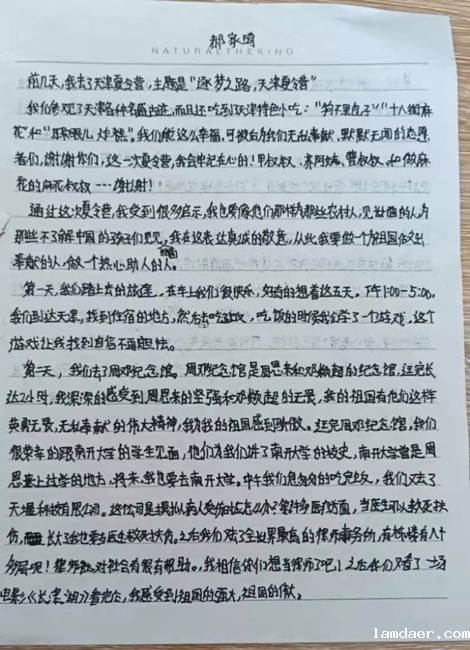 郝家琦
NATURALTHEKING
前几天,我去了天津夏令营,主题是"逐梦之路,天津夏令营"
我们参观了天津各种名胜古迹,而且还吃到跃津特色小吃:"狗不里包子""十八街麻
花"和"耳眼儿炸糕"。我们能这么幸福,可极为我们无私奉献,默默无闻的志愿
者们,谢谢你们,这一次夏令营,我会牢记在心的!甲叔叔、齐阿姨、曹叔叔、和做麻
花的麻花叔叔……谢谢!
通过这次夏令营,我受到很多启示,我也要像他们那样为那些农村人,见世面的人为
那些不了解中国的孩子们见见,我在这表达真诚的敬意,从此我要做个为祖国做出
奉献的人,做一个热心助人的人。
第一天,我们踏上去的旅途,在车上我们很快乐,好奇的想着这五天。下午1:00-5:00。
我们到达天津,找到住宿的地方,然后去吃饭,吃饭的时候我们学了一个游戏,这个
游戏让我找到自信不再胆怯。
第二天,我们去了周邓纪念馆。周邓纪念馆是周恩来和邓颖超的纪念馆,逛完长
达2小时,我深深的感受到周恩来的坚强和邓颖超的无畏,我的祖国有他们这样
英勇无畏,无私奉献的伟大精神,我为我的祖国感到骄傲。逛完周邓纪念馆,我们
很荣幸的跟南开大学的学生见面,他们为我们讲了南开大学的校史,南开大学曾是周
恩来上过学的地方,将来我也要去南开大学。中午我们匆匆的吃完饭,我们又去了
天堰科技有限公司。这公司是模拟病人受伤该怎么办?等许多医疗方面,当医生可以救死扶
伤,长大了我也要当医生救死扶伤。之后我们去了全世界最高的律师事务所,有栋楼有八十
多层呢!律师就对社会有很有帮助。我相信你们想当律师了吧!之后我们又看了一场
电影《长津湖》看完后,我感受到祖国的强大,祖国的伟大。
lamdaer.com